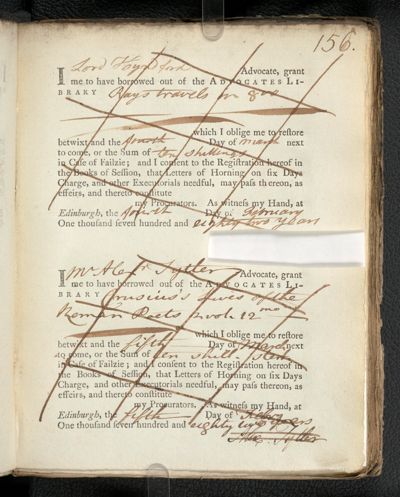 156.
I Lord Advocate, grant
me to have borrowed out of the ADVOCATES LI-
BRARY Rays travels in 8vo
which I oblige me to reſtore
betwixt and the fourth Day of March next
to come, or the Sum of ten shillings
in Caſe of Failzie; and I conſent to the Regiſtration hereof in
the Books of Seſſion, that Letters of Horning on ſix Days
Charge, and other Executorials needful, may paſs thereon, as
effeirs, and thereto conſtitute
my Procurators. As witneſs my Hand, at
Edinburgh, the fourth Day of February
One thouſand ſeven hundred and eighty two years
I Mr Alexr Tytler Advocate, grant
me to have borrowed out of the ADVOCATES LI-
BRARY Crusius's lives of the
Roman Poets 12mo
which I oblige me to reſtore
betwixt and the fifth Day of March next
to come, or the Sum of ten shill. ster.
in Caſe of Failzie; and I conſent to the Regiſtration hereof in
the Books of Seſſion, that Letters of Horning on ſix Days
Charge, and other Executorials needful, may paſs thereon, as
effeirs, and thereto conſtitute
my Procurators. As witneſs my Hand, at
Edinburgh, the fifth Day of
One thouſand ſeven hundred and eighty two years
Alex. Tytler